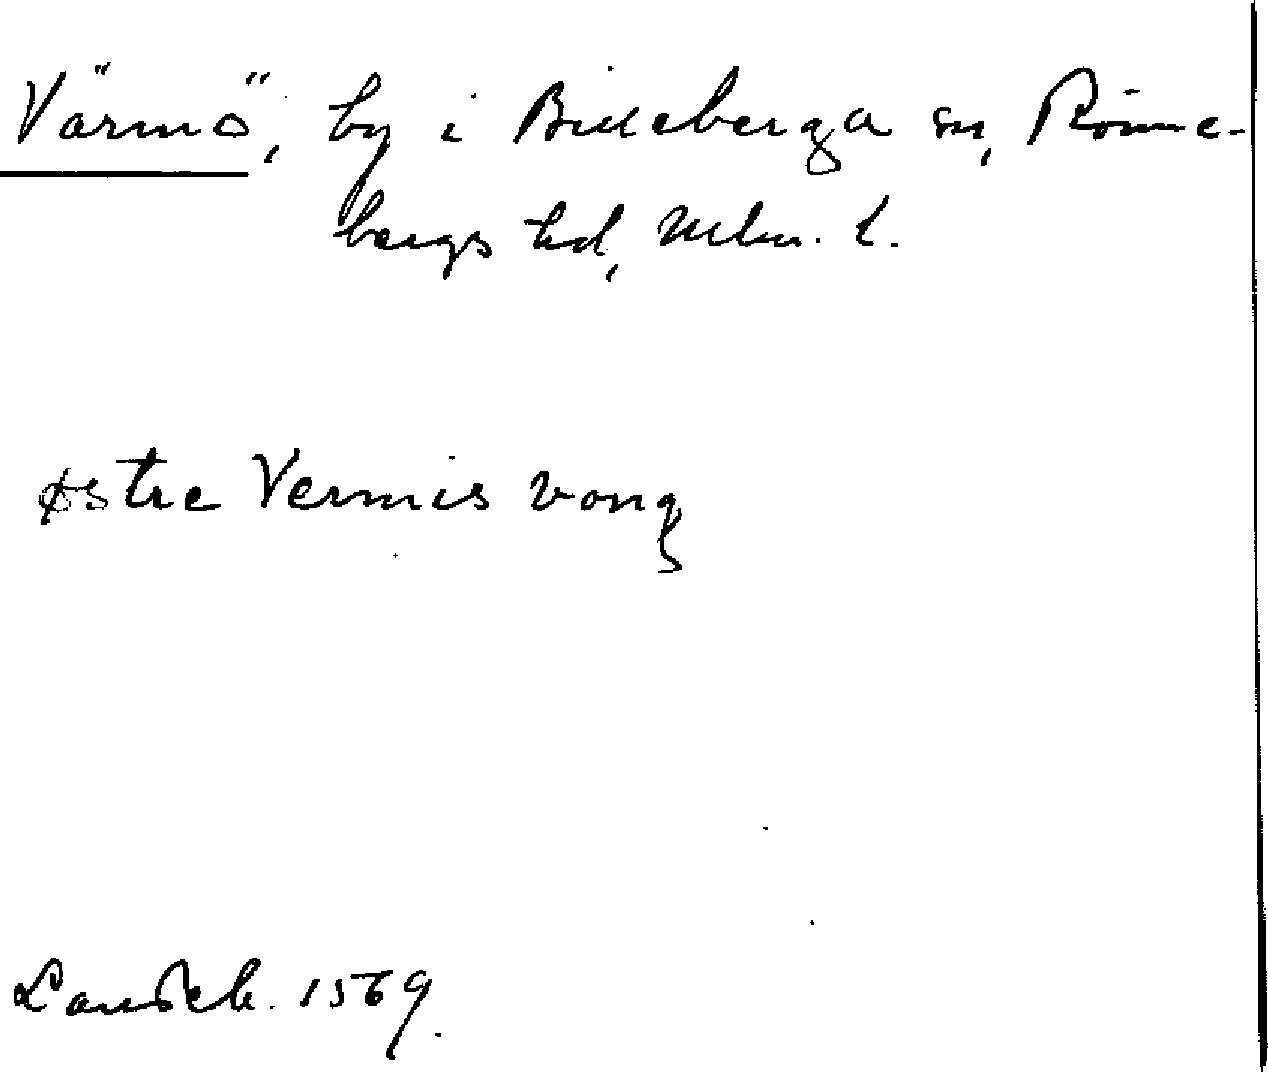 Värmö, by i Billeberga sn, Rönne-
bergs hd, Mlm. l.
østre Vermis vong
Landeb. 1569.